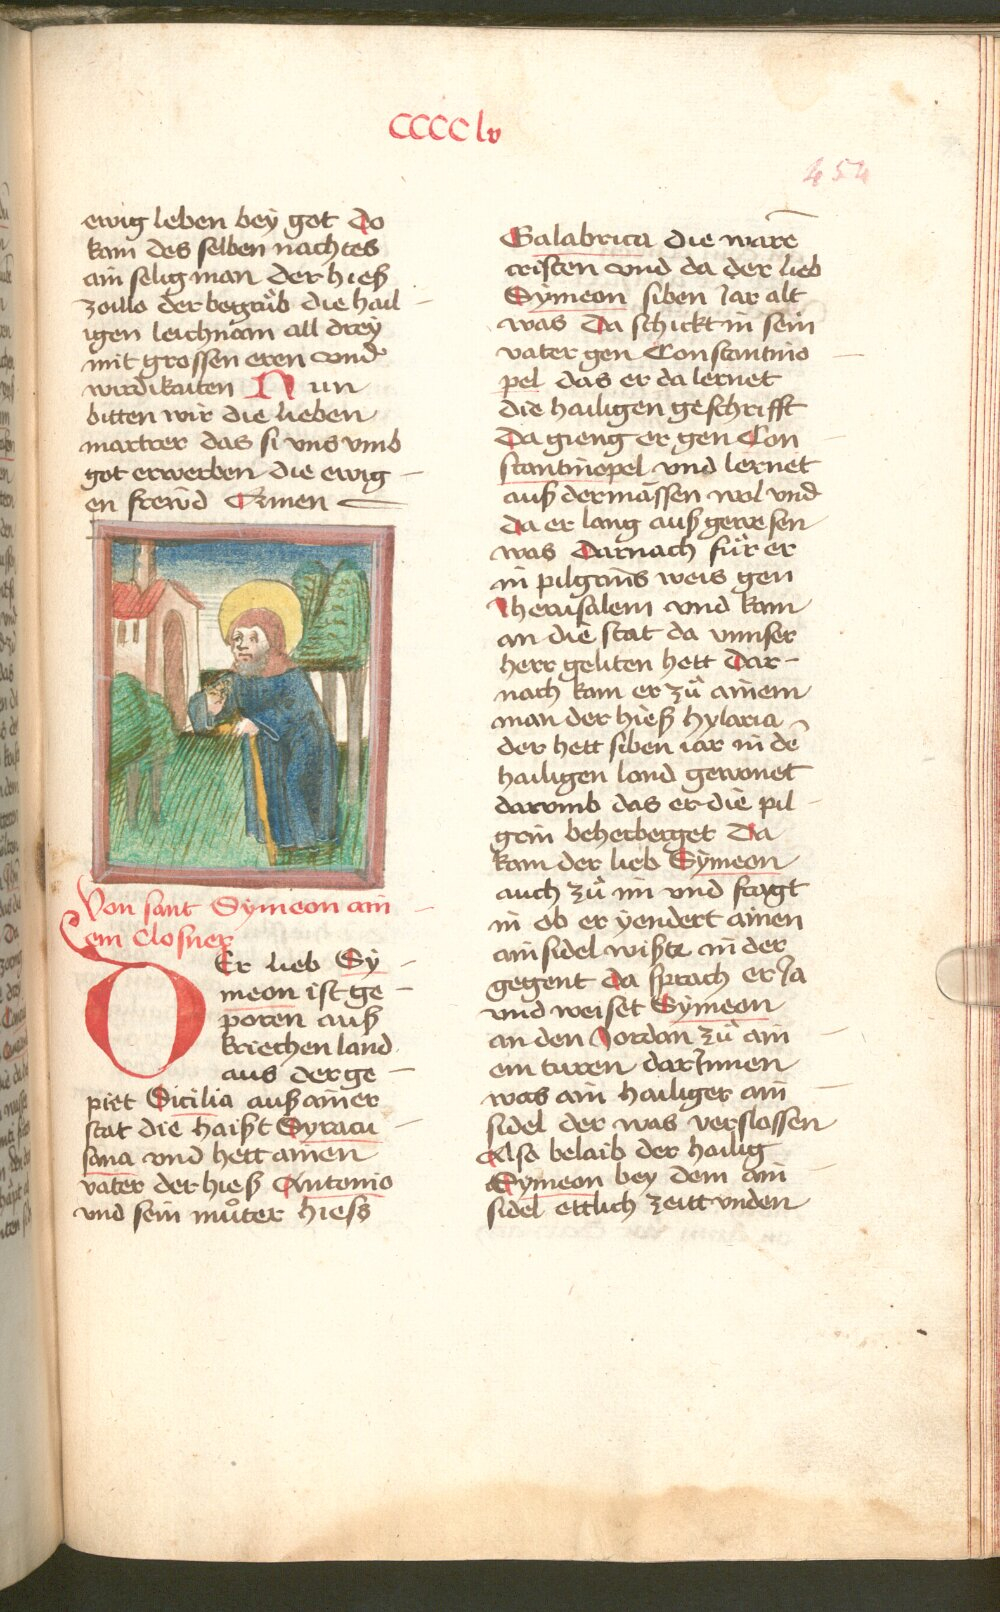 CCCC lv
454
ewig leben bey got Do
kam des selben nachtes
ain selig man der hieß
zoilo der begrůb die hail
igen leichnam all drey
mit grossen eren vnd
wirdikaiten Nun
bitten wir die lieben
martrer das si vns vmb
got erwerben die ewig
en frewd Amen
Von sant Symeon ain
em closner
DEr lieb Sy
meon ist ge
poren auß
kriechen land
aus der ge
piet Sicilia auß ainer
stat die haißt Syracu
sana vnd hett ainen
vater der hieß Anthonio
vnd sein můter hiess
Galabrica die warē
cristen vnd da der lieb
Symeon siben Jar alt
was Da schickt in sein
vater gen Constantino
pel das er da lernet
die hailigen geschrifft
Da gieng er gen Con
stantinopel vnd lernet
auß dermässen wol vnd
da er lang auß gewesen
was Darnach fůr er
in pilgrims weis gen
Jherusalem vnd kam
an die stat da vnnser
herr geliten hett Dar-
nach kam er zů ainem
man der hieß hylaria
der hett siben iar in dē
hailigen land gewonet
darvmb das er die pil
grin beherberget Da
kam der lieb Symeon
auch zů im vnd fragt
in ob er yendert ainen
ainsidel wißte in der
gegent Da sprach er Ja
vnd weiset Symeon
an den Jordan zů ain
em turen dar Jnnen
was ain hailiger ain
sidel der was verslossen
Also belaib der hailig
Symeon bey dem ain
sidel ettlich zeitt vnden